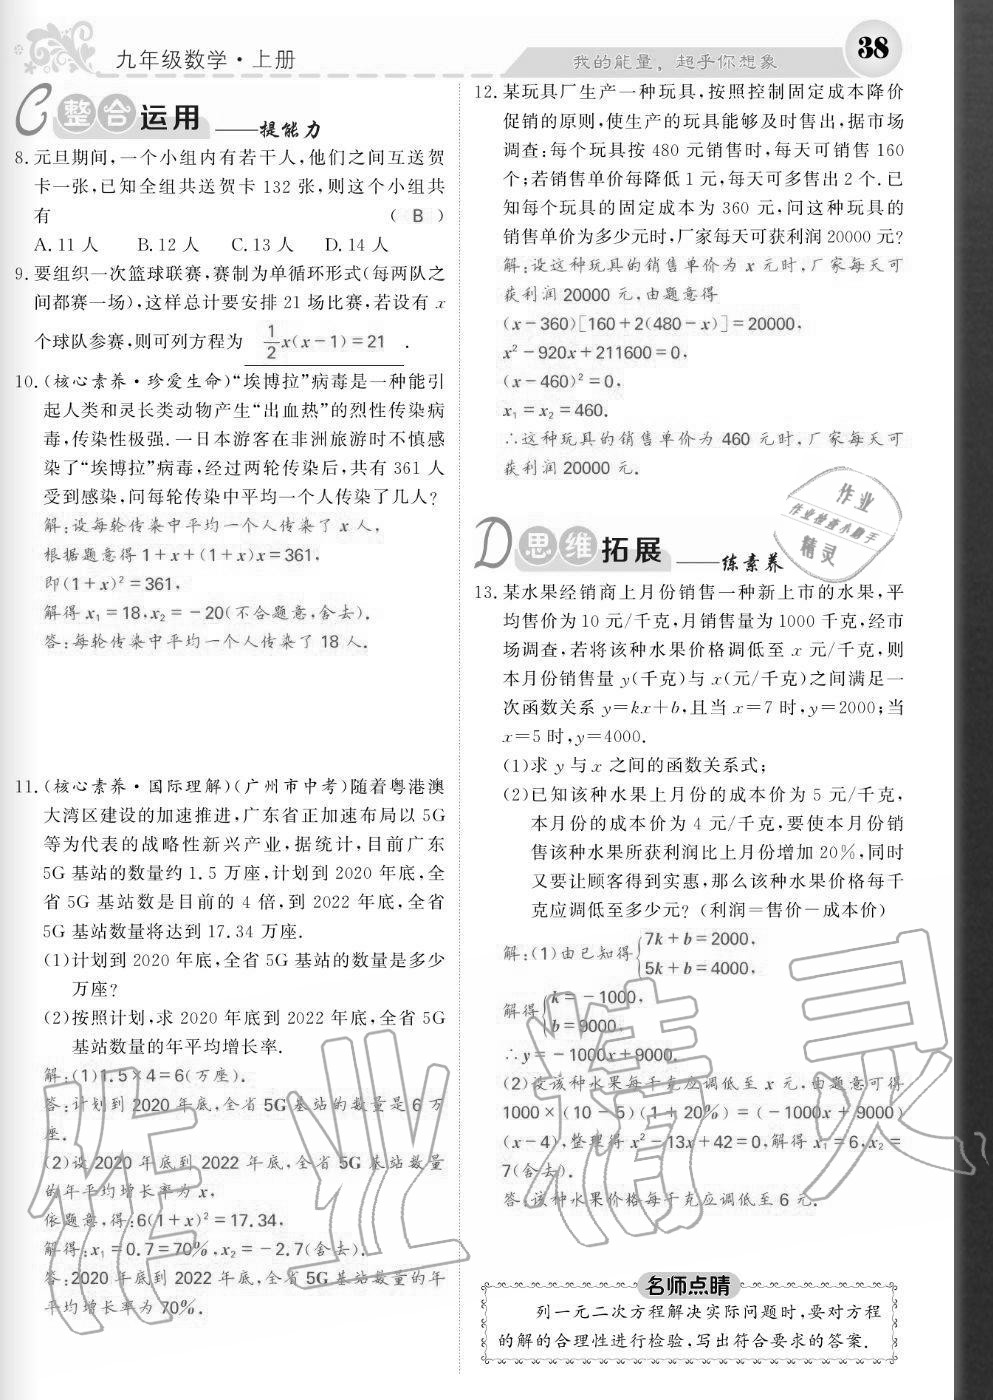 九年级数学·上册
我的能量，超乎你想象
38
C 整合运用 ——提能力
8.元旦期间,一个小组内有若干人,他们之间互送贺
卡一张,已知全组共送贺卡 132 张,则这个小组共
有 ( B )
A.11 人 B.12 人 C.13 人 D.14 人
9.要组织一次篮球联赛,赛制为单循环形式(每两队之
间都赛一场),这样总计要安排 21 场比赛,若设有 x
个球队参赛,则可列方程为 1/2 x(x-1)=21 .
10.(核心素养·珍爱生命)“埃博拉”病毒是一种能引
起人类和灵长类动物产生“出血热”的烈性传染病
毒,传染性极强.一日本游客在非洲旅游时不慎感
染了“埃博拉”病毒,经过两轮传染后,共有 361 人
受到感染,问每轮传染中平均一个人传染了几人?
解:设每轮传染中平均一个人传染了 x 人,
根据题意得 1+x+(1+x)x=361,
即(1+x)²=361,
解得 x₁=18,x₂=-20(不合题意,舍去).
答:每轮传染中平均一个人传染了 18 人.
11.(核心素养·国际理解)(广州市中考)随着粤港澳
大湾区建设的加速推进,广东省正加速布局以 5G
等为代表的战略性新兴产业,据统计,目前广东
5G 基站的数量约 1.5 万座,计划到 2020 年底,全
省 5G 基站数是目前的 4 倍,到 2022 年底,全省
5G 基站数量将达到 17.34 万座.
(1)计划到 2020 年底,全省 5G 基站的数量是多少
万座?
(2)按照计划,求 2020 年底到 2022 年底,全省 5G
基站数量的年平均增长率.
解:(1)1.5×4=6(万座).
答:计划到 2020 年底,全省 5G 基站的数量是 6 万
座.
(2)设 2020 年底到 2022 年底,全省 5G 基站数量
的年平均增长率为 x,
依题意,得:6(1+x)²=17.34,
解得:x₁=0.7=70%,x₂=-2.7(舍去).
答:2020 年底到 2022 年底,全省 5G 基站数量的年
平均增长率为 70%.
12.某玩具厂生产一种玩具,按照控制固定成本降价
促销的原则,使生产的玩具能够及时售出,据市场
调查:每个玩具按 480 元销售时,每天可销售 160
个;若销售单价每降低 1 元,每天可多售出 2 个.已
知每个玩具的固定成本为 360 元,问这种玩具的
销售单价为多少元时,厂家每天可获利润 20000 元?
解:设这种玩具的销售单价为 x 元时,厂家每天可
获利润 20000 元,由题意得
(x-360)[160+2(480-x)]=20000,
x²-920x+211600=0,
(x-460)²=0,
x₁=x₂=460.
∴这种玩具的销售单价为 460 元时,厂家每天可
获利润 20000 元.
作业
作业检查小助手
精灵
D 思维拓展 ——练素养
13.某水果经销商上月份销售一种新上市的水果,平
均售价为 10 元/千克,月销售量为 1000 千克,经市
场调查,若将该种水果价格调低至 x 元/千克,则
本月份销售量 y(千克)与 x(元/千克)之间满足一
次函数关系 y=kx+b,且当 x=7 时,y=2000;当
x=5 时,y=4000.
(1)求 y 与 x 之间的函数关系式;
(2)已知该种水果上月份的成本价为 5 元/千克,
本月份的成本价为 4 元/千克,要使本月份销
售该种水果所获利润比上月份增加 20%,同时
又要让顾客得到实惠,那么该种水果价格每千
克应调低至多少元? (利润=售价-成本价)
解:(1)由已知得{7k+b=2000,
5k+b=4000,
解得{k=-1000,
b=9000.
∴y=-1000x+9000.
(2)设该种水果每千克应调低至 x 元,由题意可得
1000×(10-5)(1+20%)=(-1000x+9000)
(x-4),整理得 x²-13x+42=0,解得 x₁=6,x₂=
7(舍去).
答:该种水果价格每千克应调低至 6 元.
作业精灵
名师点睛
列一元二次方程解决实际问题时,要对方程
的解的合理性进行检验,写出符合要求的答案.